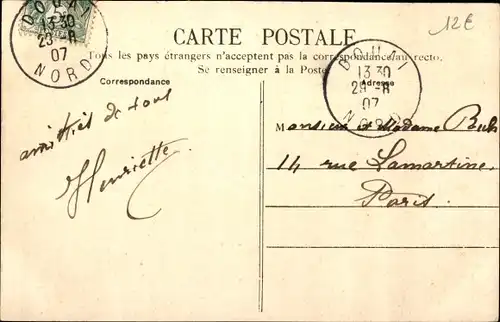 DOUAI
13 30
29 -8
07
NORD
12€
CARTE POSTALE
Tous les pays étrangers n'acceptent pas la correspondance au recto.
Se renseigner à la Poste
Correspondance
Adresse
DOUAI
13 30
29 -8
07
NORD
amitiés de tous
Henriette
Monsieur et Madame
14 rue Lamartine.
Paris.